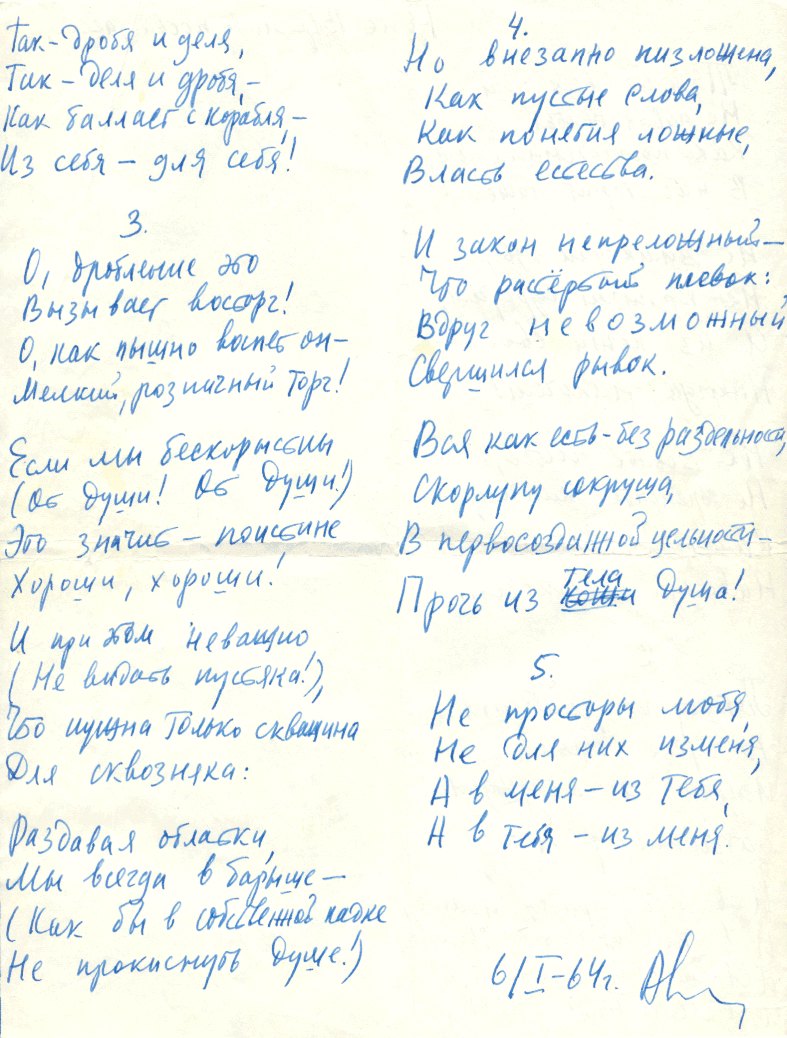 Так - дробя и деля,
Так - деля и дробя, -
Как балласт с корабля, -
Из себя - для себя!
3.
О, дробление это
Вызывает восторг!
О, как пышно воспет он -
Мелкий, розничный торг!
Если мы бескорыстны
(От души! От души!)
Это значит - поистине
Хороши, хороши!
И при этом неважно,
(Не видать пустяка!),
Что нужна только скважина
Для сквозняка:
Раздавая облатки,
Мы всегда в барыше -
(Как бы в собственной кадке
Не прокиснуть душе!)
4.
Но внезапно низложена,
Как пустые слова,
Как понятия ложные,
Власть естества.
И закон непреложный -
Что растёртый плевок:
Вдруг невозможный
Свершился рывок.
Вся как есть - без раздельности,
Скорлупу сокруша,
В первосозданной цельности -
Прочь из тела душа!
5.
Не просторы любя,
Не для них изменя,
А в меня - из тебя,
А в тебя - из меня.
6/I-64г.